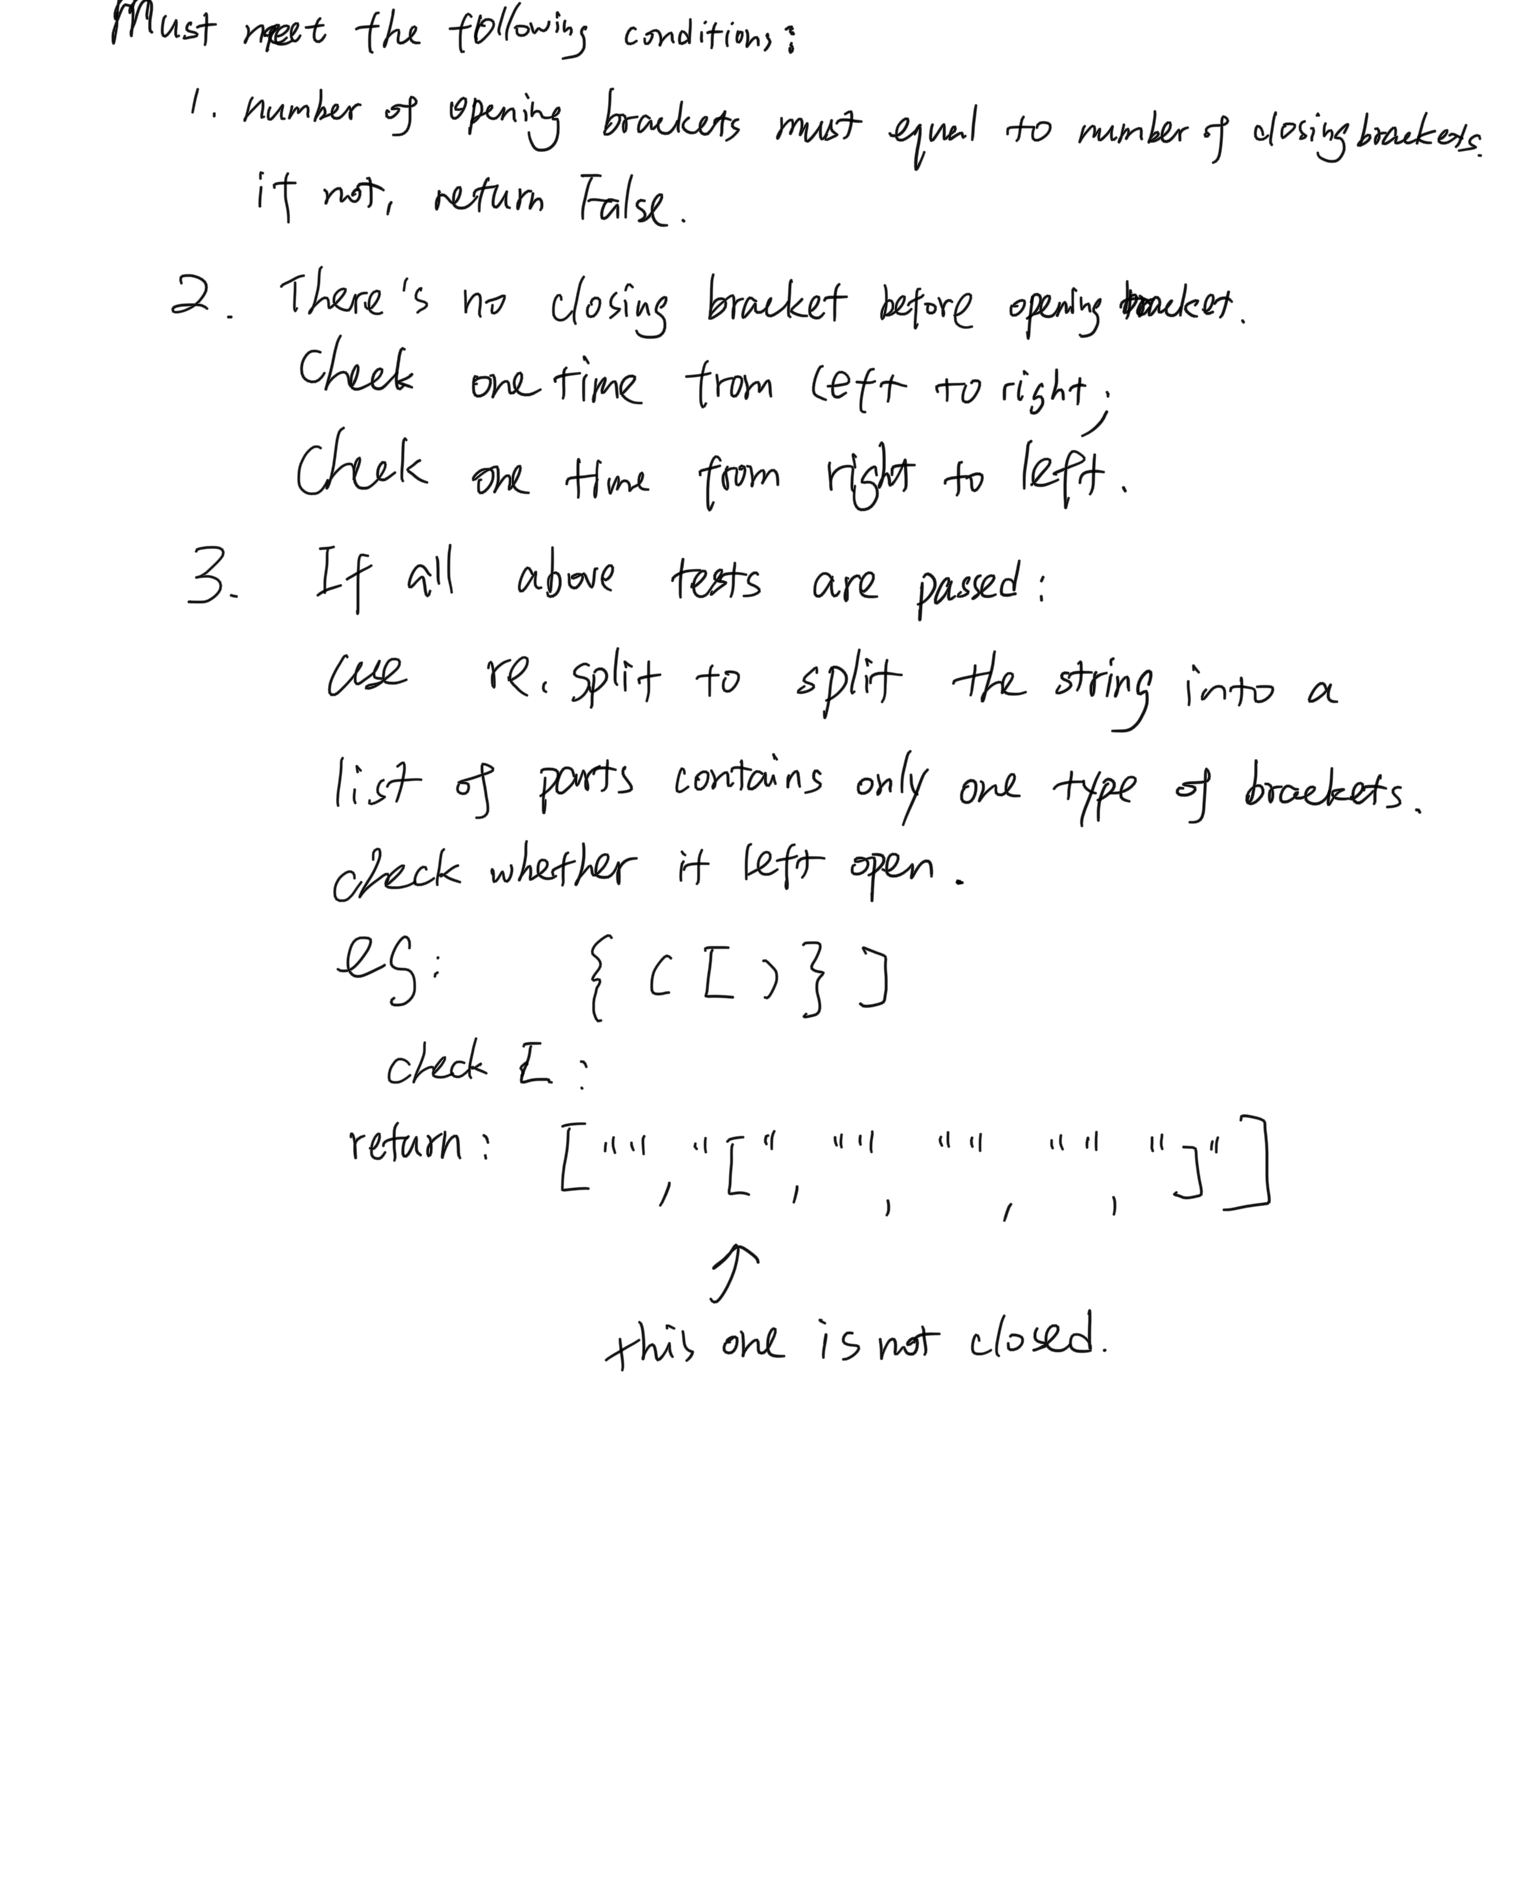 Must meet the following conditions:
1. number of opening brackets must equal to number of closing brackets.
if not, return False.
2. There's no closing bracket before opening bracket.
Check one time from left to right;
Check one time from right to left.
3. If all above tests are passed:
use re.split to split the string into a
list of parts contains only one type of brackets.
check whether it left open.
eg: { ( [ ) } ]
check [ :
return: ["", "[", "", "", "", "]"]
↑
this one is not closed.